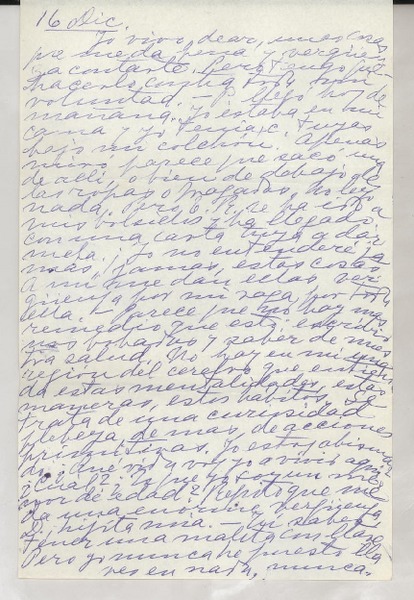 16 Dic.
Yo vivo, dear, unas cosas
que me da pena y vergüen-
za contarte. Pero tengo que
hacerlo, contra toda mi
voluntad. llegó hoy de
mañana. Yo estaba en mi
cama y yo tenía c. tuyas
bajo mi colchón. Apenas
miró, parece que sacó una
de allí, o bien de debajo de
las ropas o frazadas. No leyó
nada. Pero se ha ido a
mis bolsillos y ha llegado
con una carta tuya a dár-
mela. Yo no entenderé ja-
más, jamás, estas cosas.
A mí me dan ellas ver-
güenza por mi raza, por toda
ella. — Parece que no hay más
remedio que esté escribien-
do bobadas y saber de nues-
tra salud. No hay en mí una
región del cerebro que entien-
da estas mentalidades, estas
maneras, estos hábitos. Se
trata de una curiosidad
plebeya de más, de acciones
primitivas. Yo estoy abisma-
da. ¿Qué voy yo a vivir aquí?
¿Cuál? ¿Es que yo soy un me-
nor de edad? Repito que me
da una enorme vergüenza
Di, hijita mía. — sabes
tener una maleta con llave
Pero yo nunca he puesto lla
ves en nada, nunca.